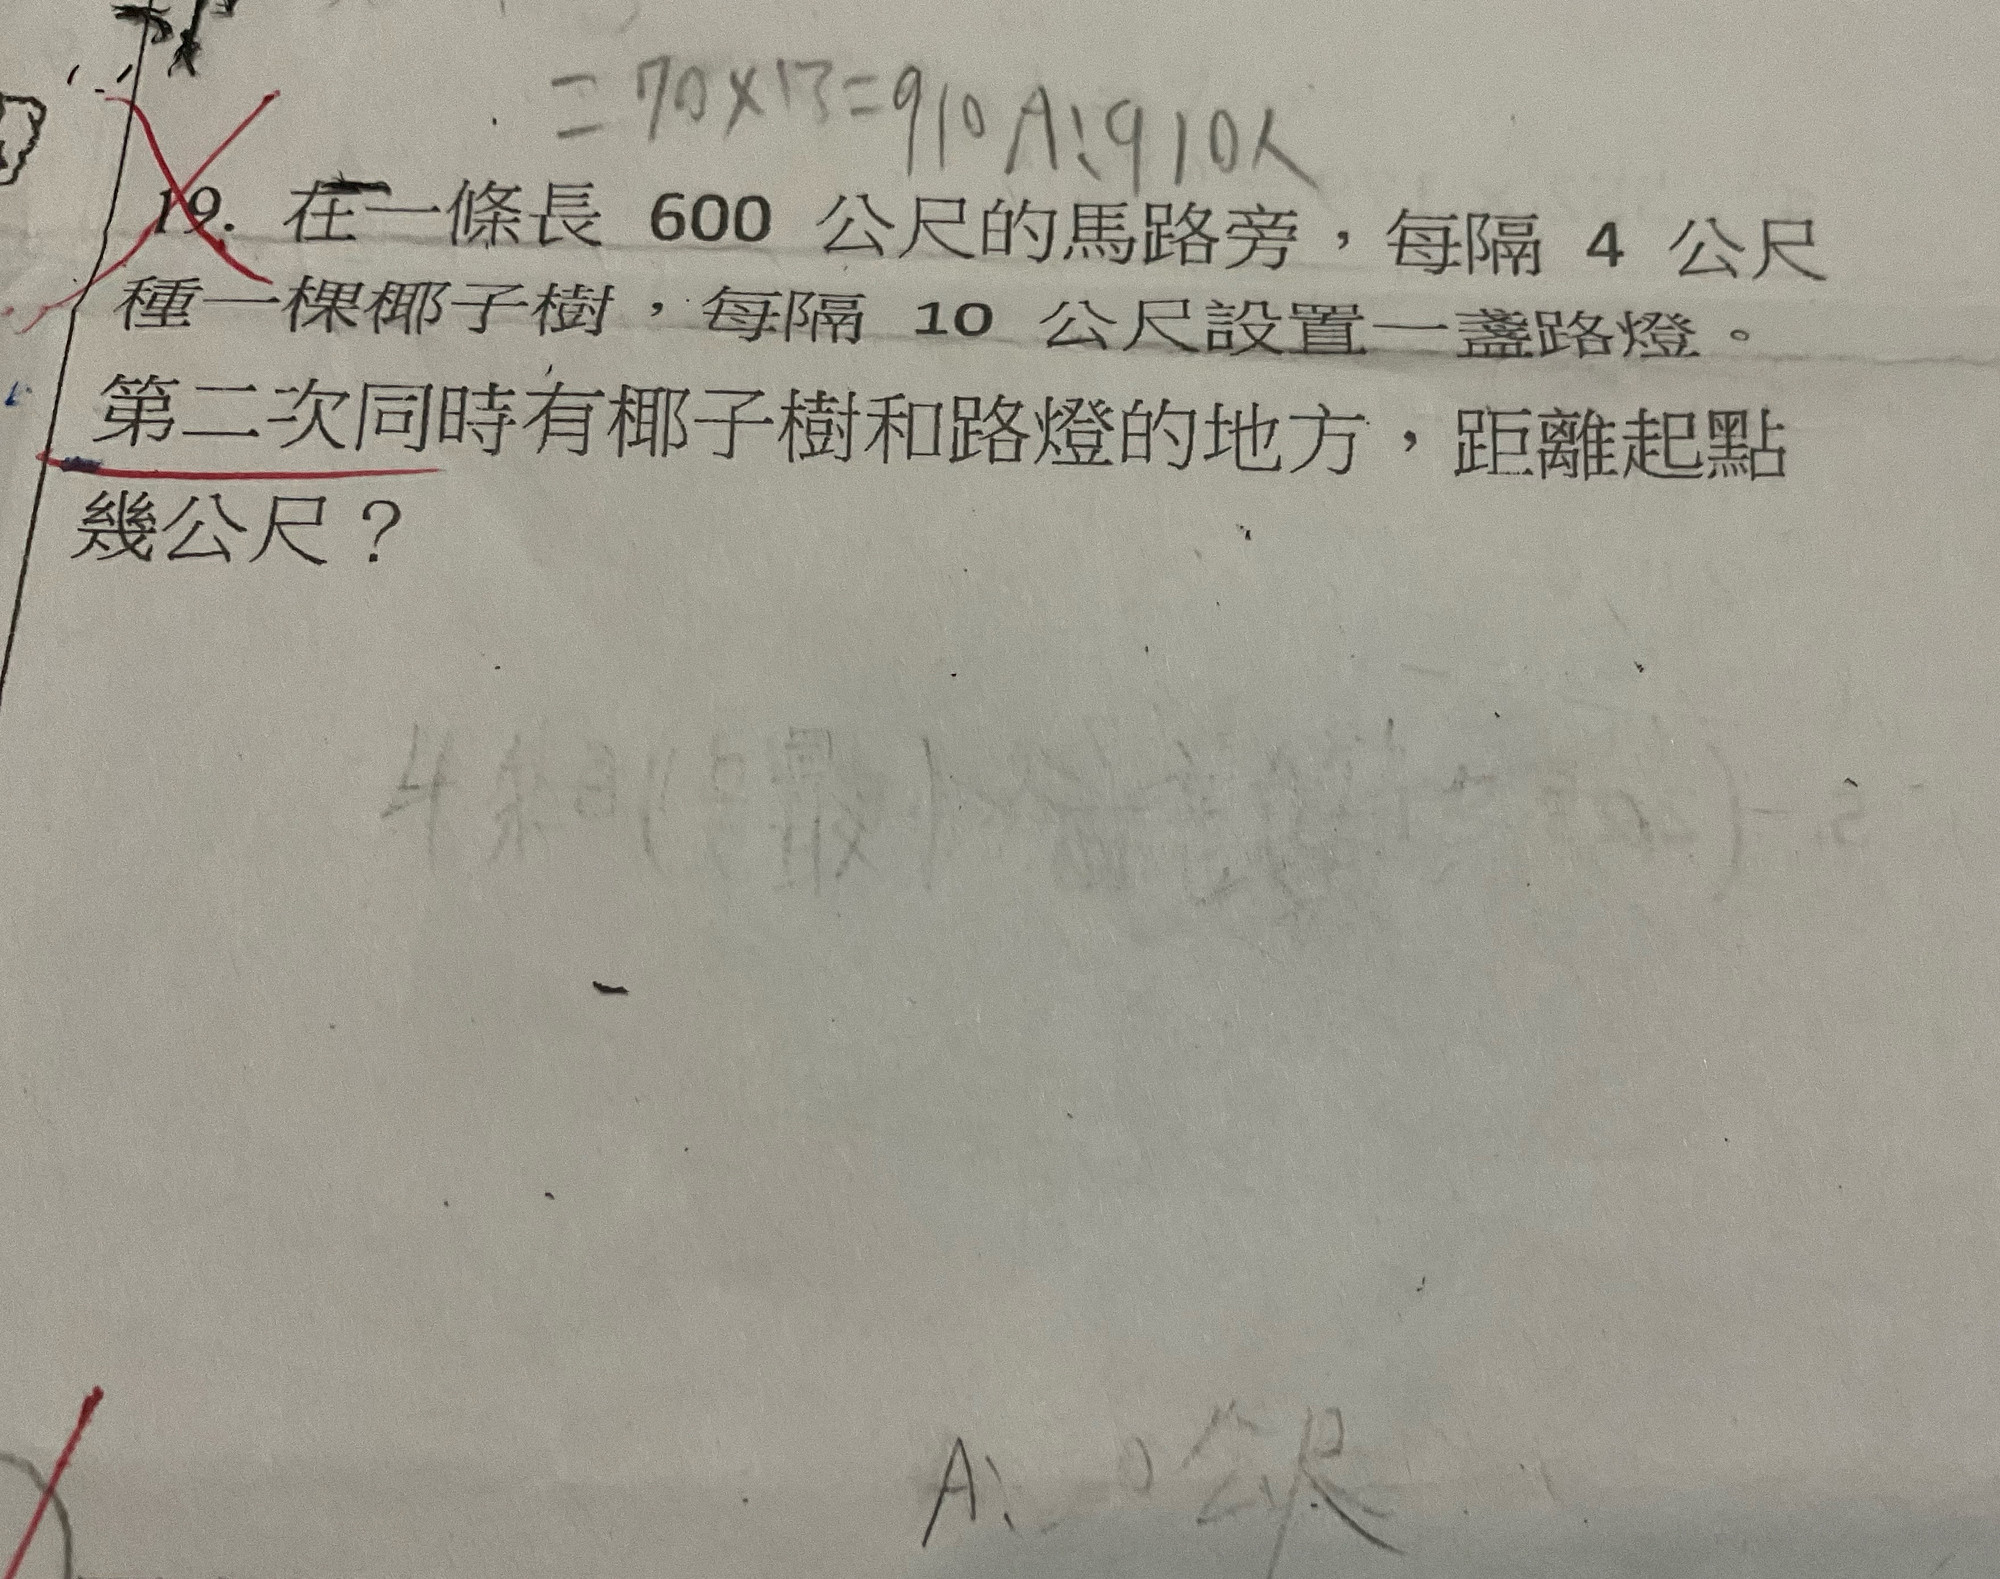 =70×13=910A:910人
19. 在一條長 600 公尺的馬路旁，每隔 4 公尺
種一棵椰子樹，每隔 10 公尺設置一盞路燈。
第二次同時有椰子樹和路燈的地方，距離起點
幾公尺？
A: 0公尺